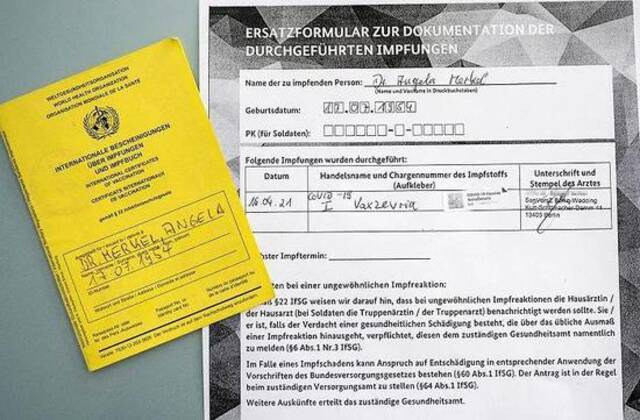 WELTGESUNDHEITSORGANISATION
WORLD HEALTH ORGANIZATION
ORGANISATION MONDIALE DE LA SANTÉ
INTERNATIONALE BESCHEINIGUNGEN
ÜBER IMPFUNGEN
UND IMPFBUCH
INTERNATIONAL CERTIFICATES
OF VACCINATION
CERTIFICATS INTERNATIONAUX
DE VACCINATION
DR. MERKEL, ANGELA
17.07.1954
ERSATZFORMULAR ZUR DOKUMENTATION DER
DURCHGEFÜHRTEN IMPFUNGEN
Name der zu impfenden Person: Dr. Angela Merkel
(Name und Vorname in Druckbuchstaben)
Geburtsdatum: 17.07.1954
PK (für Soldaten):
Folgende Impfungen wurden durchgeführt:
Datum
Handelsname und Chargennummer des Impfstoffs
(Aufkleber)
Unterschrift und
Stempel des Arztes
16.04.21
COVID-19
I Vaxzevria
13405 Berlin
Impftermin:
bei einer ungewöhnlichen Impfreaktion:
§22 IfSG weisen wir darauf hin, dass bei ungewöhnlichen Impfreaktionen die Hausärztin /
der Hausarzt (bei Soldaten die Truppenärztin / der Truppenarzt) benachrichtigt werden sollte. Sie /
er ist, falls der Verdacht einer gesundheitlichen Schädigung besteht, die über das übliche Ausmaß
einer Impfreaktion hinausgeht, verpflichtet, diesen dem zuständigen Gesundheitsamt namentlich
zu melden (§6 Abs.1 Nr.3 IfSG).
Im Falle eines Impfschadens kann Anspruch auf Entschädigung in entsprechender Anwendung der
Vorschriften des Bundesversorgungsgesetzes bestehen (§60 Abs.1 IfSG). Der Antrag ist in der Regel
beim zuständigen Versorgungsamt zu stellen (§64 Abs.1 IfSG).
Weitere Auskünfte erteilt das zuständige Gesundheitsamt.